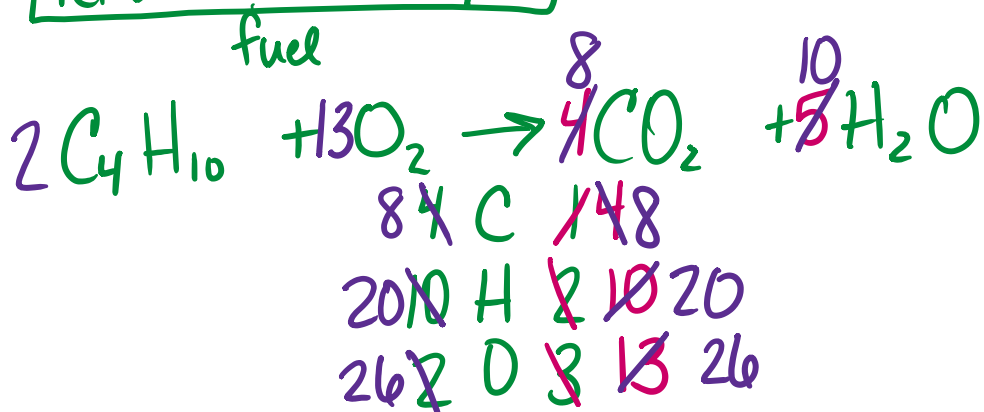 fuel
8 10
2 C₄H₁₀ + 13O₂ → 4CO₂ + 5H₂O
8 4 C 1 4 8
20 10 H 2 10 20
26 2 O 3 13 26